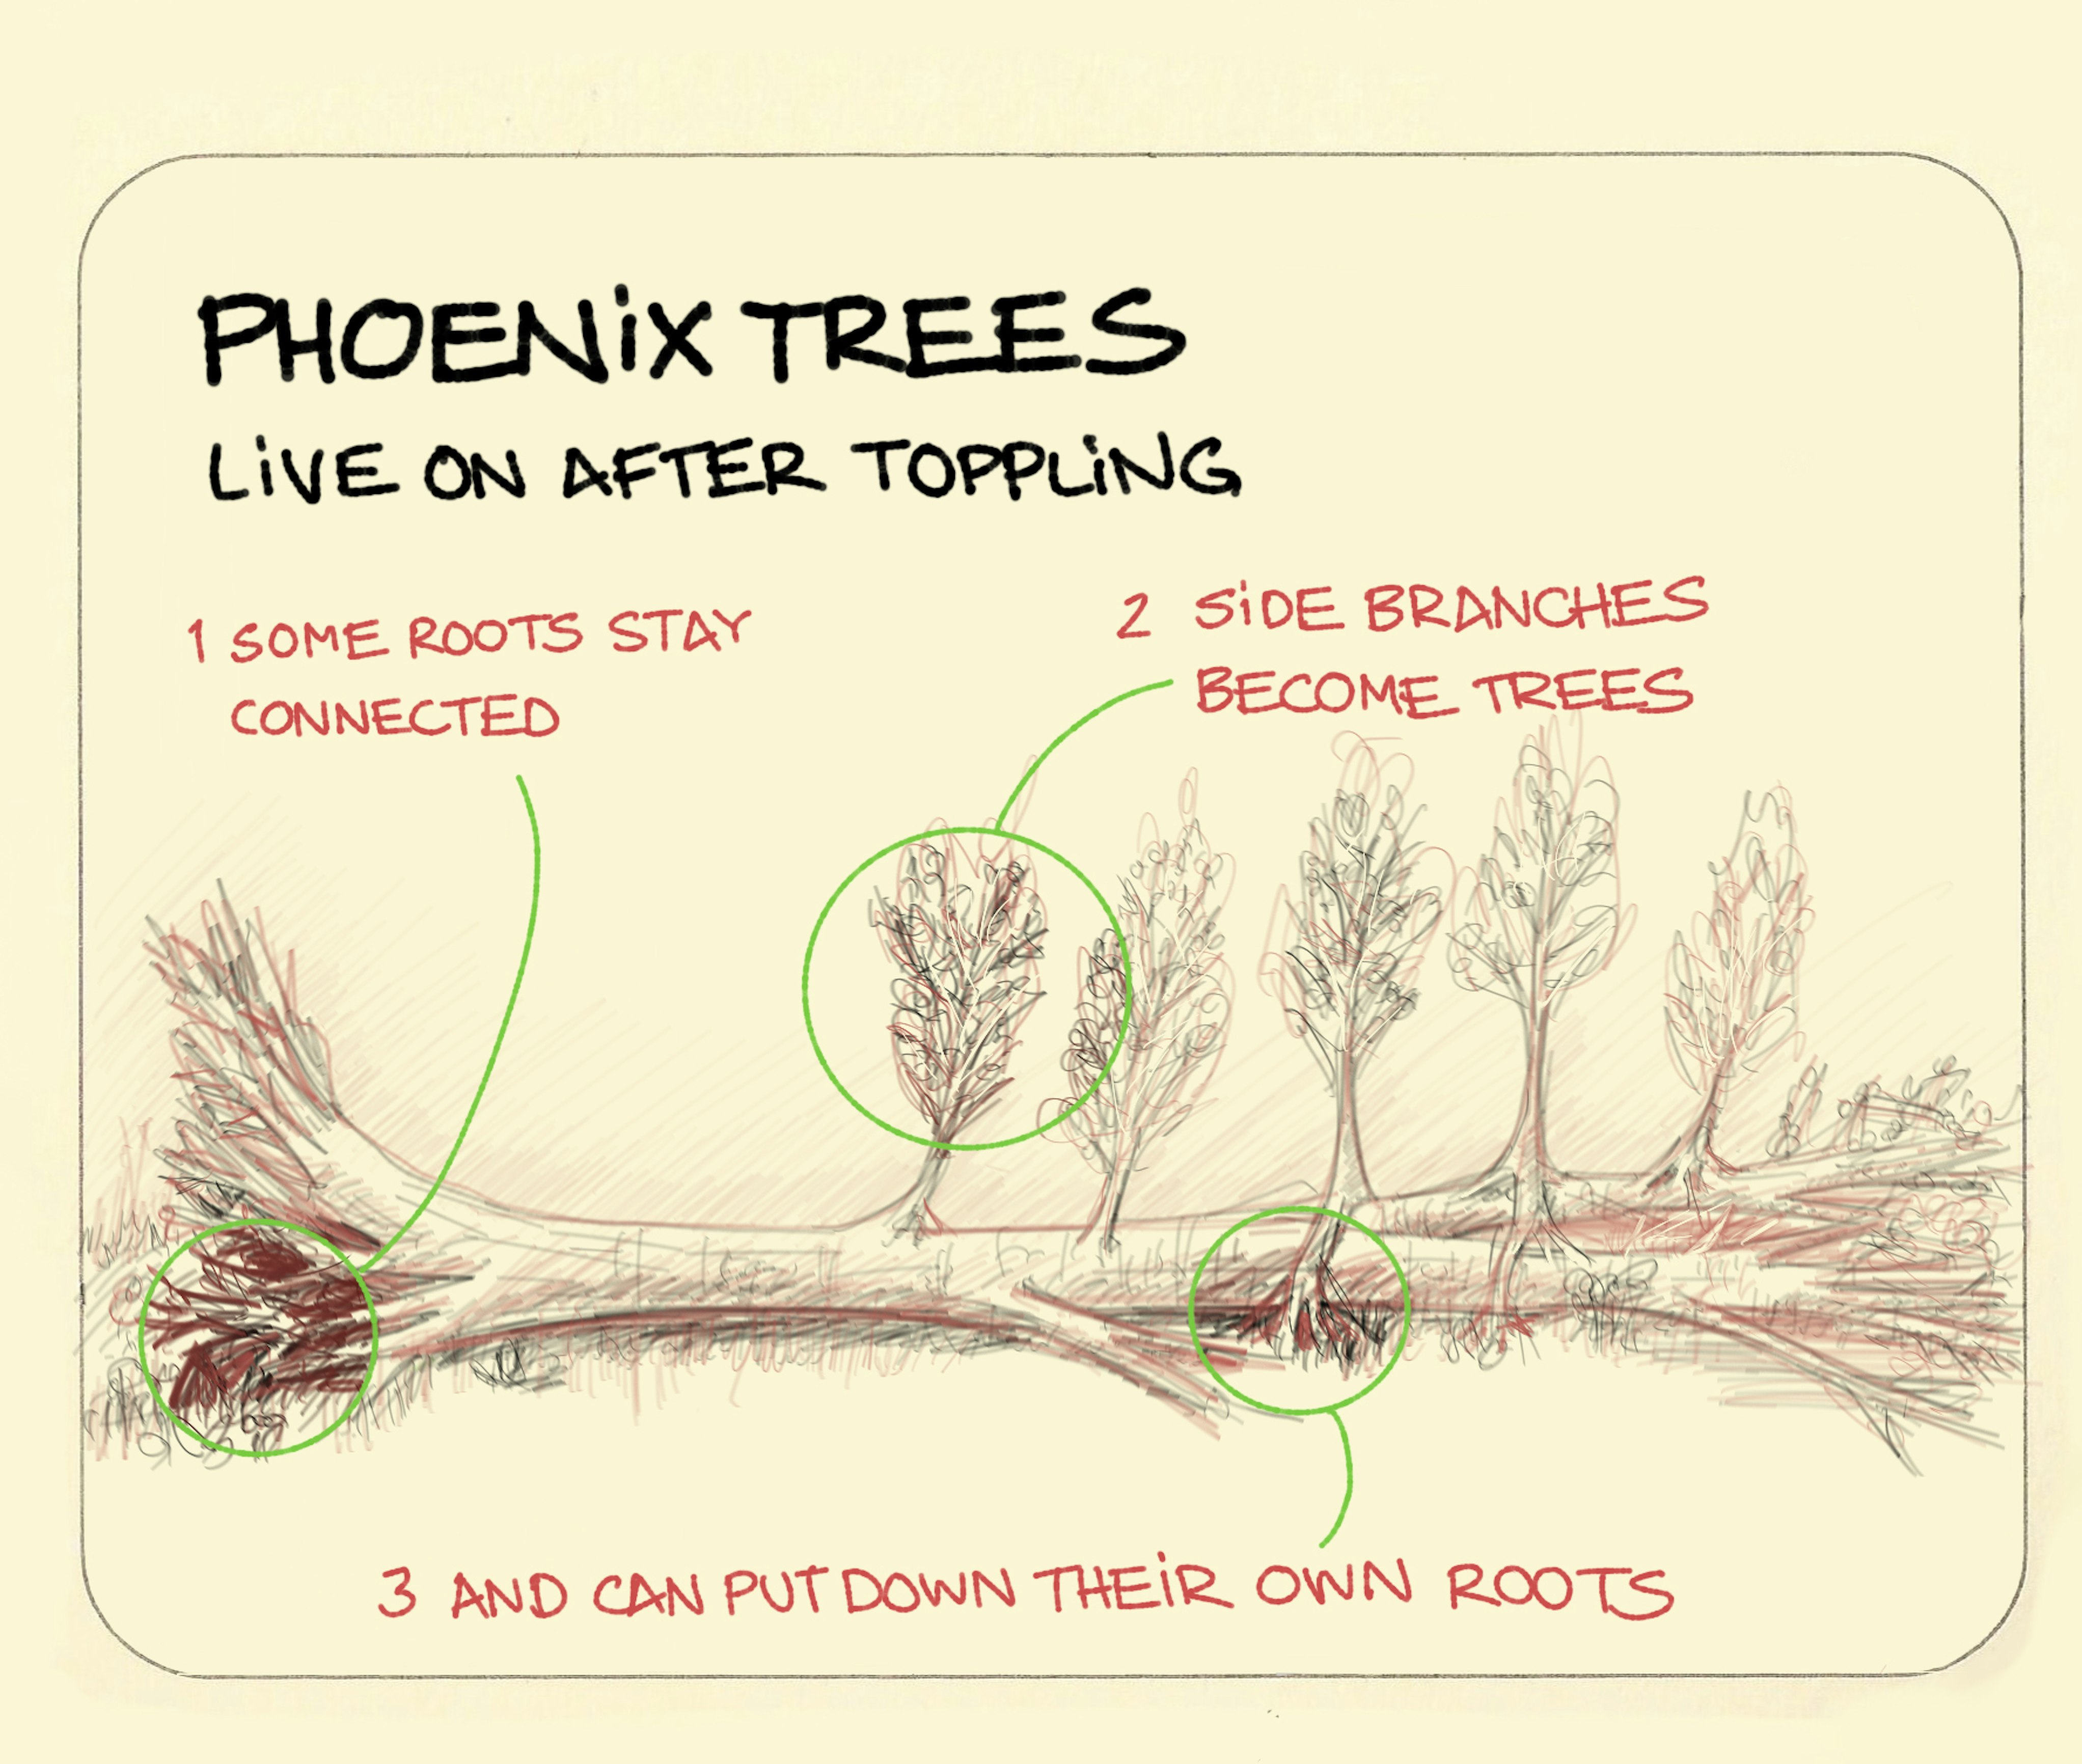 PHOENiX TREES
LiVE ON AFTER TOPPLiNG
1 SOME ROOTS STAY
CONNECTED
2 SiDE BRANCHES
BECOME TREES
3 AND CAN PUT DOWN THEiR OWN ROOTS